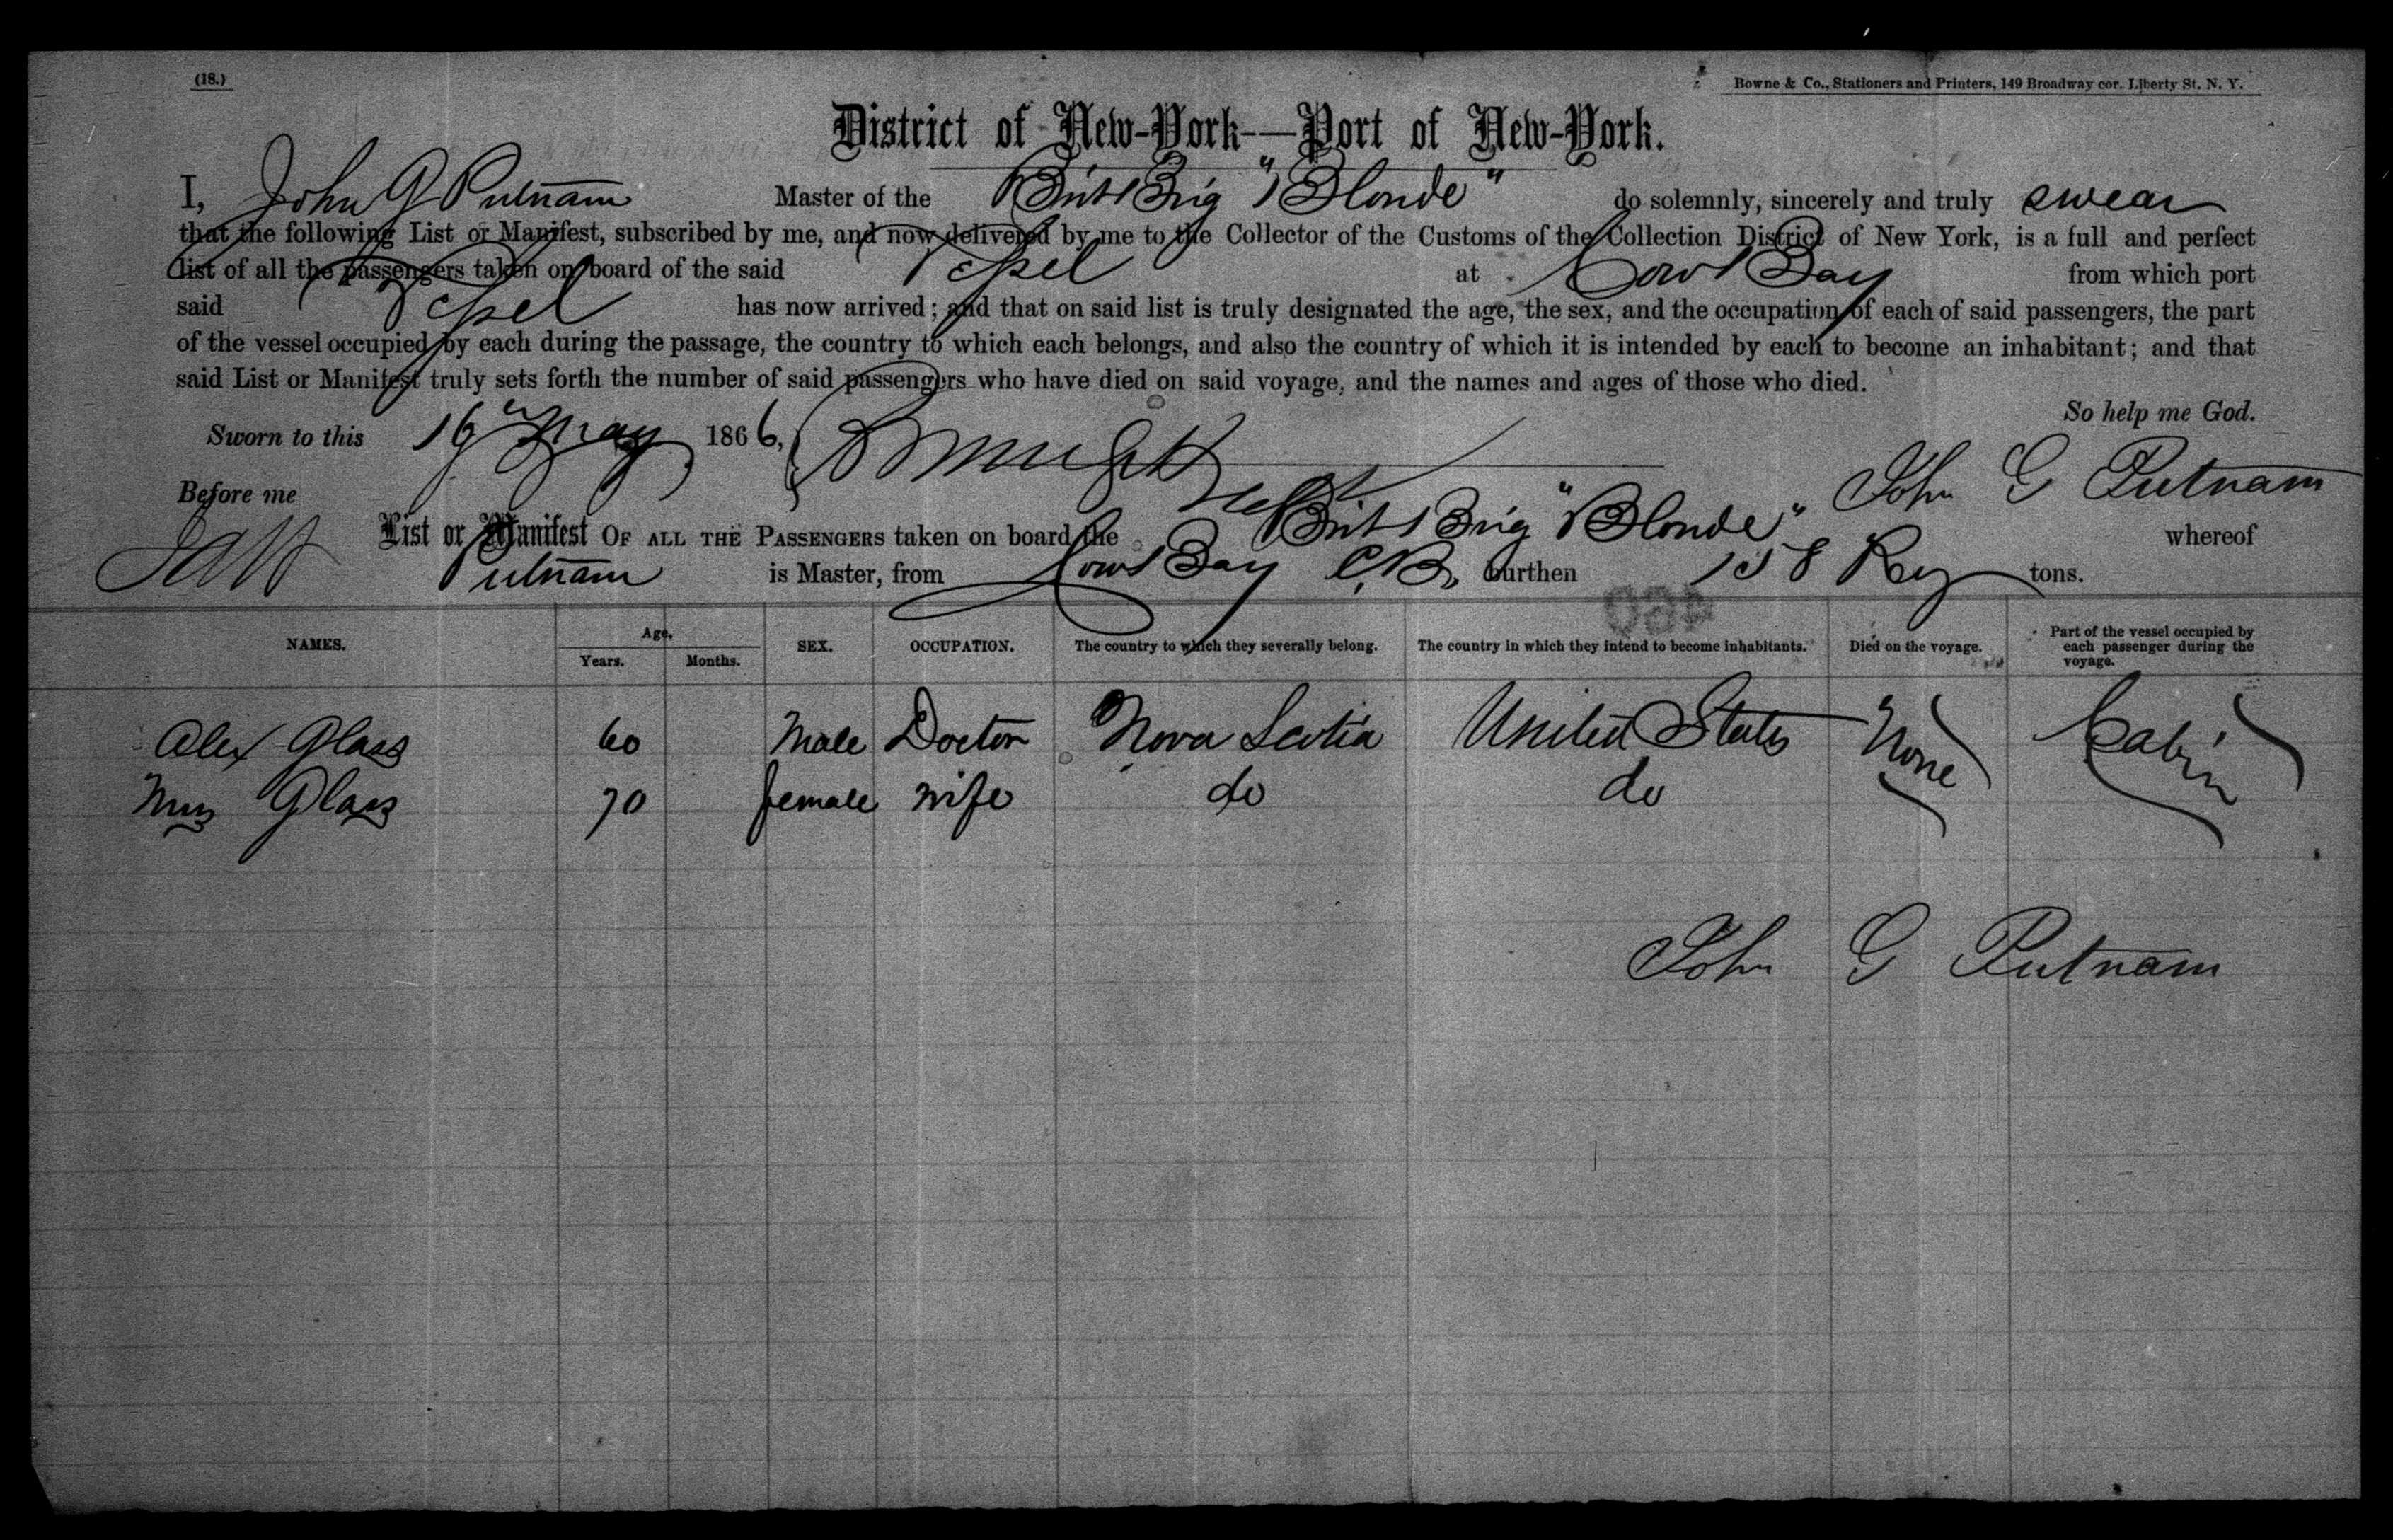 (18.)
Bowne & Co., Stationers and Printers, 149 Broadway cor. Liberty St. N. Y.
District of New-York--Port of New-York.
I, John G Putnam Master of the Brit Brig "Blonde" do solemnly, sincerely and truly swear
that the following List or Manifest, subscribed by me, and now delivered by me to the Collector of the Customs of the Collection District of New York, is a full and perfect
list of all the passengers taken on board of the said Vessel at Cow Bay from which port
said Vessel has now arrived; and that on said list is truly designated the age, the sex, and the occupation of each of said passengers, the part
of the vessel occupied by each during the passage, the country to which each belongs, and also the country of which it is intended by each to become an inhabitant; and that
said List or Manifest truly sets forth the number of said passengers who have died on said voyage, and the names and ages of those who died.
So help me God.
Sworn to this 16" May 1866,
John G Putnam
Before me
List or Manifest OF ALL THE PASSENGERS taken on board the Brit Brig "Blonde" whereof
Putnam is Master, from Cow Bay C.B. burthen 158 Reg tons.
NAMES. Age. Years. Months. SEX. OCCUPATION. The country to which they severally belong. The country in which they intend to become inhabitants. Died on the voyage. Part of the vessel occupied by each passenger during the voyage.
Alex Glass 60 Male Doctor Nova Scotia United States None Cabin
Mrs Glass 70 female wife do do
John G Putnam